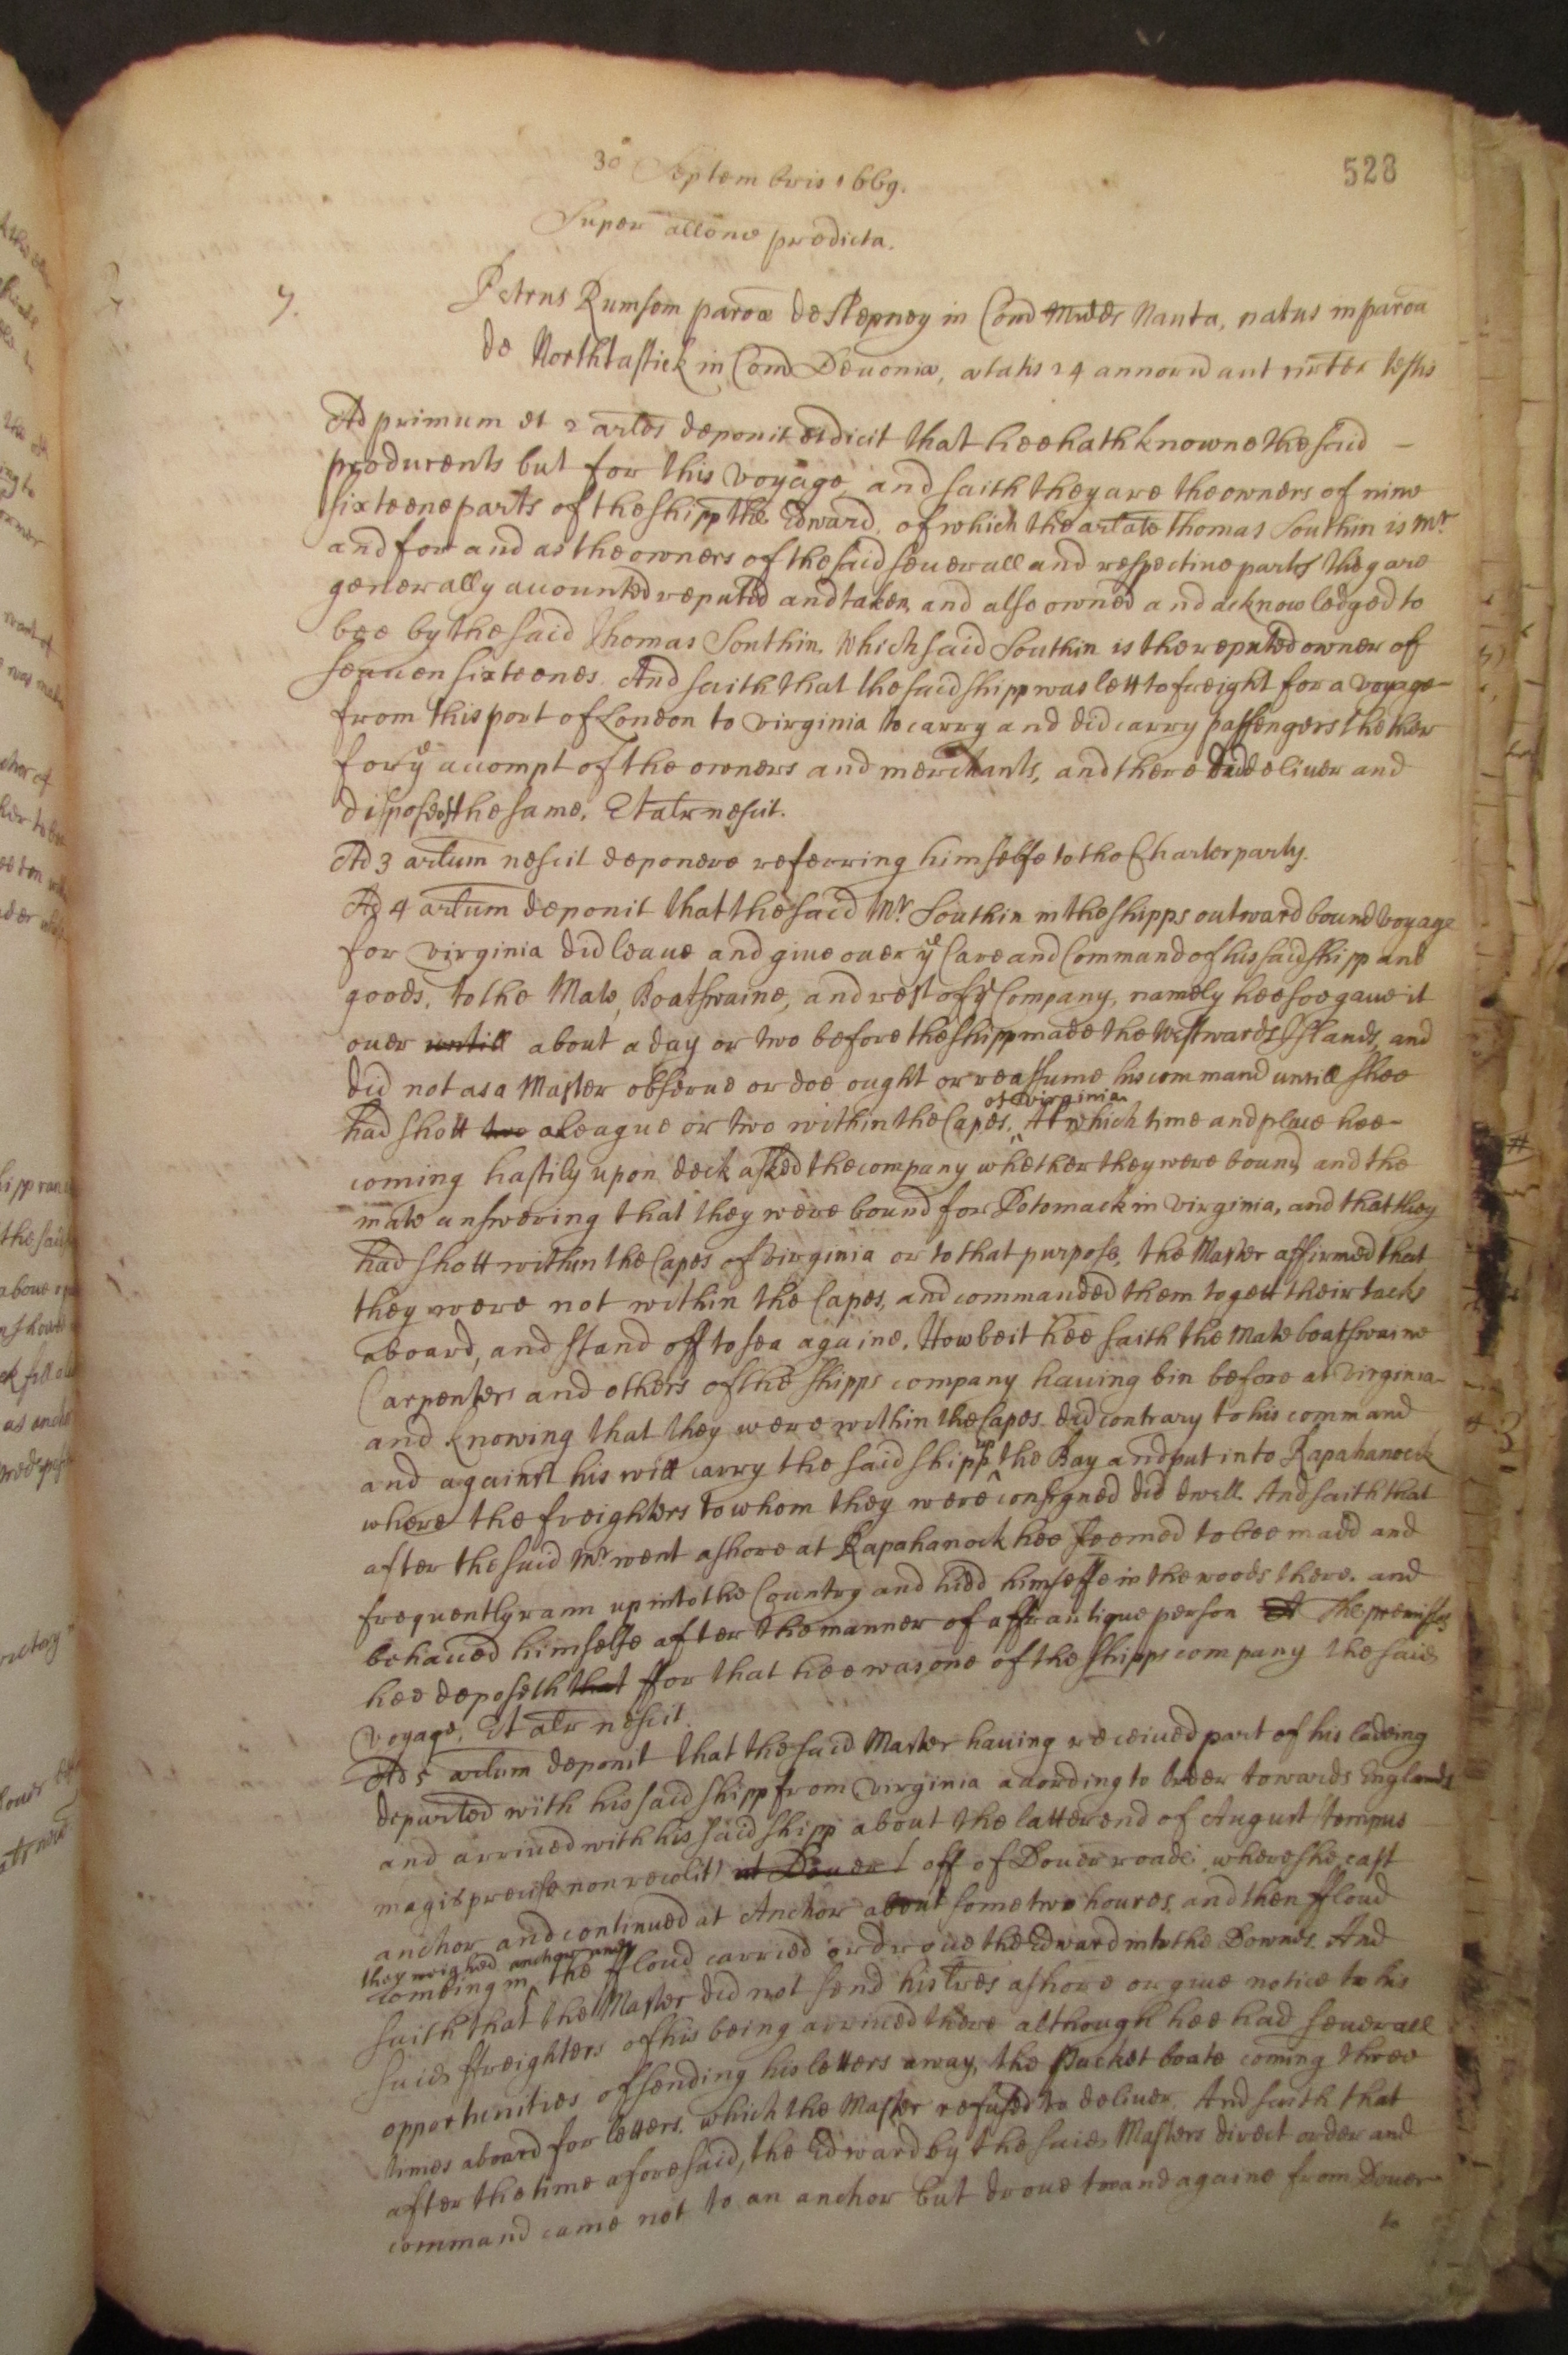 528
30 Septembris 1669.
Super allōne predicta.
7. Petrus Rumsom paroæ de Stepney in Com̄ Midd̄ Nauta, natus in paroa
de Northtastick in Com̄ Devoniæ, ætatis 24 annorū aut circiter testis
Ad primum et 2 arlōs deponit et dicit that hee hath knowne the said
producents but for this voyage, and saith they are the owners of nine
sixteene parts of the shipp the Edward, of which the arlate Thomas Southin is Mr.
and for and as the owners of the said seuerall and respectiue parts they are
generally accounted reputed and taken, and also owned and acknowledged to
bee by the said Thomas Southin, Which said Southin is the reputed owner of
seauen sixteenes. And saith that the said shipp was lett to freight for a voyage
from this port of London to Virginia to carry and did carry passengers thether
for ye accompt of the owners and merchants, and there did deliuer and
dispose of the same. Et alr nescit.
Ad 3 arlum nescit deponere referring himselfe to the Charterparty.
Ad 4 arlum deponit that the said Mr. Southin in the shipps outward bound voyage
for Virginia did leaue and giue ouer ye Care and Command of his said shipp and
goods, to the Mate, Boatswaine, and rest of ye Company, namely hee soe gaue it
ouer untill about a day or two before the shipp made the Westwards Islands, and
did not as a Master obserue or doe ought or reassume his command untill shee
had shott two a league or two within the Capes of Virginia. At which time and place hee
coming hastily upon deck asked the company whether they were bound, and the
mate answering that they were bound for Potomack in Virginia, and that they
had shott within the Capes of Virginia or to that purpose, the Master affirmed that
they were not within the Capes, and commanded them to gett their tacks
aboard, and stand off to sea againe. Howbeit hee saith the Mate boatswaine
Carpenters and others of the shipps company hauing bin before at Virginia
and knowing that they were within the Capes did contrary to his command
and against his will carry the said shipp up the Bay and put into Rapahanock
where the freighters to whom they were consigned did dwell. And saith that
after the said Mr. went ashore at Rapahanock hee seemed to bee madd and
frequently rann up into the Country and hidd himselfe in the woods there. and
behaued himselfe after the manner of a ffrantique person Et The premisses
hee deposeth that ffor that hee was one of the shipps company the said
voyage. Et alr nescit.
Ad 5 arlum deponit that the said Master hauing receiued part of his ladeing
departed with his said shipp from Virginia according to order towards England
and arriued with his said shipp about the latter end of August tempus
magis precise non recolit) at Douer off of Douer roade where she cast
anchor and continued at Anchor about some two houres, and then ffloud
comeing in they weighed anchor and the ffloud carried or droue the Edward into the Downes. And
saith that the Master did not send his tres ashore or giue notice to his
said ffreighters of his being arriued there although hee had seuerall
opportunities of sending his letters away, the Packet boate coming three
times aboard for letters, which the Master refused to deliuer. And saith that
after the time aforesaid, the Edward by the said Masters direct order and
command came not to an anchor but droue too and againe from Douer
to